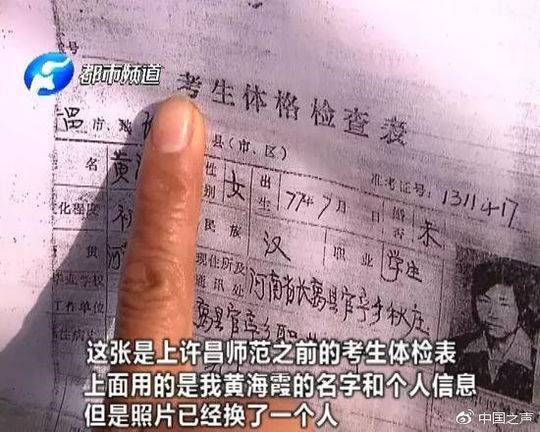 号
都市频道
考生体格检查表
市、 县(市、区)
准考证号:1311417
名 黄 性别 女 出生 77年7月 日 婚否 未
化程度 初 民族 汉 职业 学生
贯 河 现住所及通讯处 河南省 县官亭乡秋庄
毕业学校
工作单位 县官亭乡
病
这张是上许昌师范之前的考生体检表
上面用的是我黄海霞的名字和个人信息
但是照片已经换了一个人
中国之声